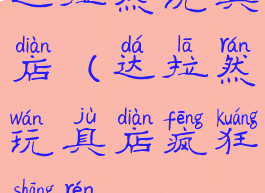 达拉然玩具
diàn dá lā rán
店（达拉然
wán jù diàn fēng kuáng
玩具店疯狂
shāng rén